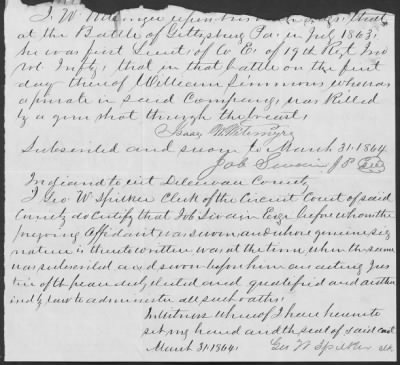 I. W. upon his oath says, that
at the Battle of Gettysburg Pa; in July 1863;
he was first Lieut; of Co E; of 19th Regt Ind
Vol. Infty; that in that battle on the first
day thereof William Simmons who was
a private in said Company, was killed
by a gun shot through the breast;
Isaac W Witemyre
Subscribed and sworn to March 31. 1864.
Job Swain J P Seal
Indiana to wit Delaware County
I Geo W Spilker Clerk of the Circuit Court of said
County do Certify that Job Swain Esqr before whom the
foregoing Affidavit was sworn and whose genuine sig
nature is thereto written was at the time when the same
was subscribed and sworn before him an acting Jus
tice of the peace duly elected and qualified and author
ized by law to administer all such oaths;
In witness whereof I have hereunto
set my hand and the seal of said court
March 31. 1864. Geo W Spilker clk